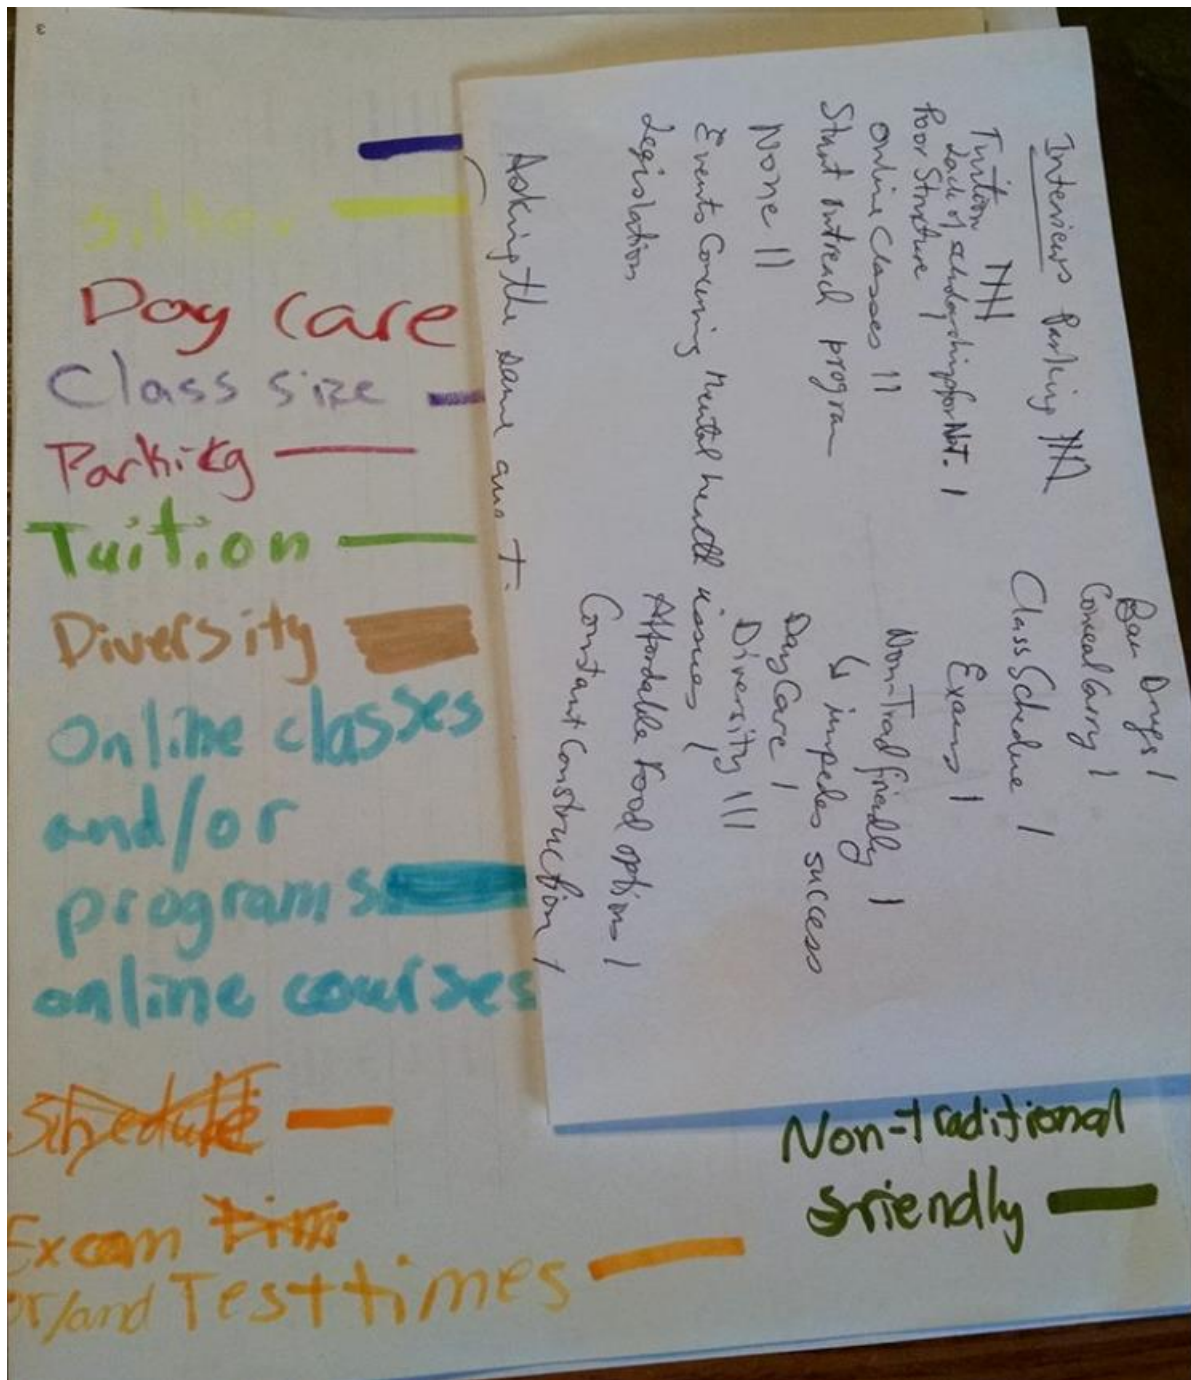 3
Day Care
Class size
Parkikg
Tuition
Diversity
Online classes
and/or
programs
online courses
Shedule
Exam
or/and Test times
Non-traditional
friendly
Interviews Parking
Tuition
Lack of scholarships for Nat. |
Poor Structure
Online Classes ||
Start outreach program
None ||
Events Concerning Mental health issues |
Legislation
Asking the same
Ban Drugs |
Conceal Carry |
Class Schedule |
Exams |
Non-Trad friendly |
↳ impedes success
Day Care |
Diversity |||
Affordable Food options |
Constant Construction |